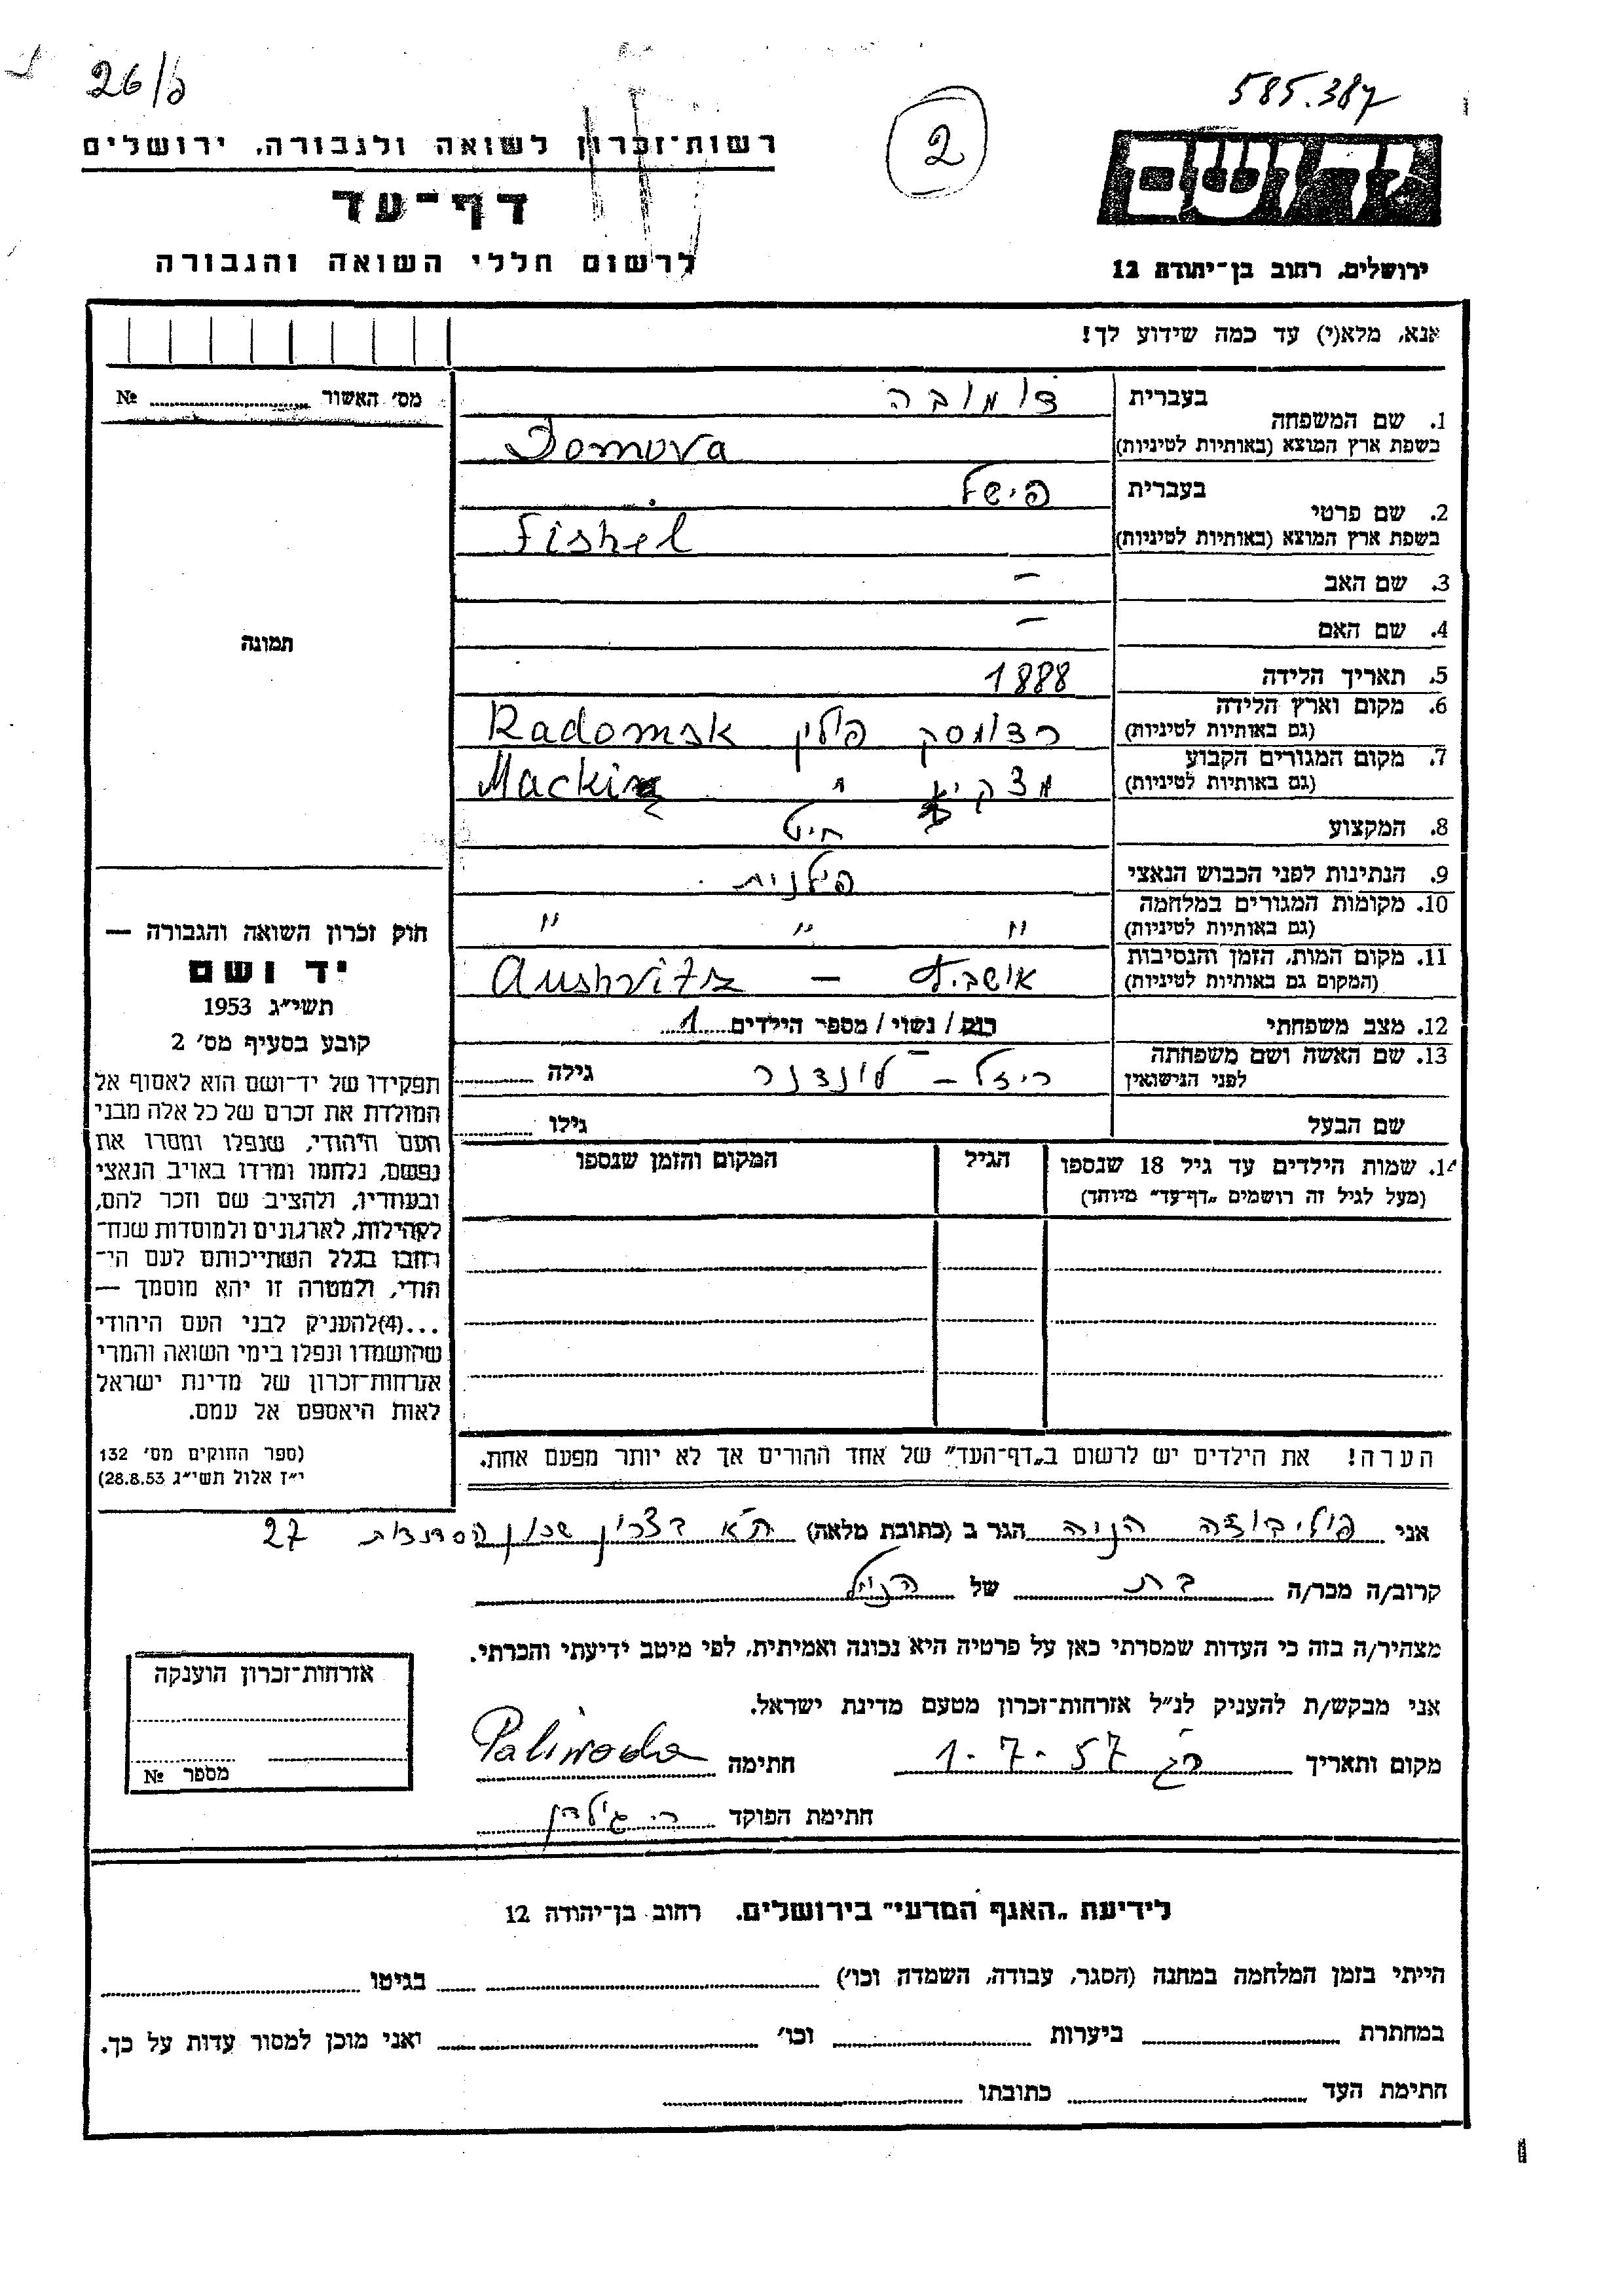 26/ב
585.387
רשות־זכרון לשואה ולגבורה, ירושלים
2
ידושם
דף־עד
לרשום חללי השואה והגבורה
ירושלים, רחוב בן־יהודה 12
אנא, מלא(י) עד כמה שידוע לך!
מס׳ האשור № 
בעברית דומובה
1. שם המשפחה
בשפת ארץ המוצא (באותיות לטיניות) Domova
בעברית פישל
2. שם פרטי
בשפת ארץ המוצא (באותיות לטיניות) Fishel
3. שם האב –
4. שם האם –
תמונה
5. תאריך הלידה 1888
6. מקום וארץ הלידה
(גם באותיות לטיניות) רדומסק פולין Radomsk
7. מקום המגורים הקבוע
(גם באותיות לטיניות) "
8. המקצוע חיט
9. הנתינות לפני הכבוש הנאצי פולנית
10. מקומות המגורים במלחמה
(גם באותיות לטיניות) " " "
11. מקום המות, הזמן והנסיבות
(המקום גם באותיות לטיניות) אושביץ – Aushvitz
12. מצב משפחתי רוק / נשוי / מספר הילדים 1
13. שם האשה ושם משפחתה
לפני הנישואין ריזל – לונדנר גילה
שם הבעל גילו
14. שמות הילדים עד גיל 18 שנספו הגיל המקום והזמן שנספו
(מעל לגיל זה רושמים „דף־עד״ מיוחד)
הערה! את הילדים יש לרשום ב„דף־העד״ של אחד ההורים אך לא יותר מפעם אחת.
חוק זכרון השואה והגבורה —
יד ושם
תשי״ג 1953
קובע בסעיף מס׳ 2
תפקידו של יד־ושם הוא לאסוף אל
המולדת את זכרם של כל אלה מבני
העם היהודי, שנפלו ומסרו את
נפשם, נלחמו ומרדו באויב הנאצי
ובעוזריו, ולהציב שם וזכר להם,
לקהילות, לארגונים ולמוסדות שנח־
רחבו בגלל השתייכותם לעם הי־
הודי, ולמטרה זו יהא מוסמך —
...(4)להעניק לבני העם היהודי
שהושמדו ונפלו בימי השואה והמרי
אזרחות־זכרון של מדינת ישראל
לאות היאספם אל עמם.
(ספר החוקים מס׳ 132
י״ז אלול תשי״ג 28.8.53)
אני פליבודה הניה הגר ב (כתובת מלאה) ת״א דצרון שכון הסתדרות 27
קרוב/ה מכר/ה בת של הנ״ל
מצהיר/ה בזה כי העדות שמסרתי כאן על פרטיה היא נכונה ואמיתית, לפי מיטב ידיעתי והכרתי.
אני מבקש/ת להעניק לנ״ל אזרחות־זכרון מטעם מדינת ישראל.
מקום ותאריך 1.7.57 חתימה Paliwoda
חתימת הפוקד
אזרחות־זכרון הוענקה
מספר №
לידיעת „האגף המדעי״ בירושלים. רחוב בן־יהודה 12
הייתי בזמן המלחמה במחנה (הסגר, עבודה, השמדה וכו׳) בגיטו
במחתרת ביערות וכו׳ ואני מוכן למסור עדות על כך.
חתימת העד כתובתו